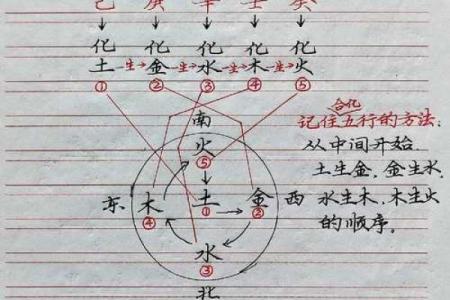 己 庚 辛 壬 癸
化 化 化 化 化
土 生 金 生 水 生 木 生 火
① ② ③ ④ ⑤
合化
记住五行的方法:
从中间开始
土生金,金生水,
水生木,木生火
的顺序。
南
火
⑤
东 木 土 金 西
④ ① ②
水
③
北